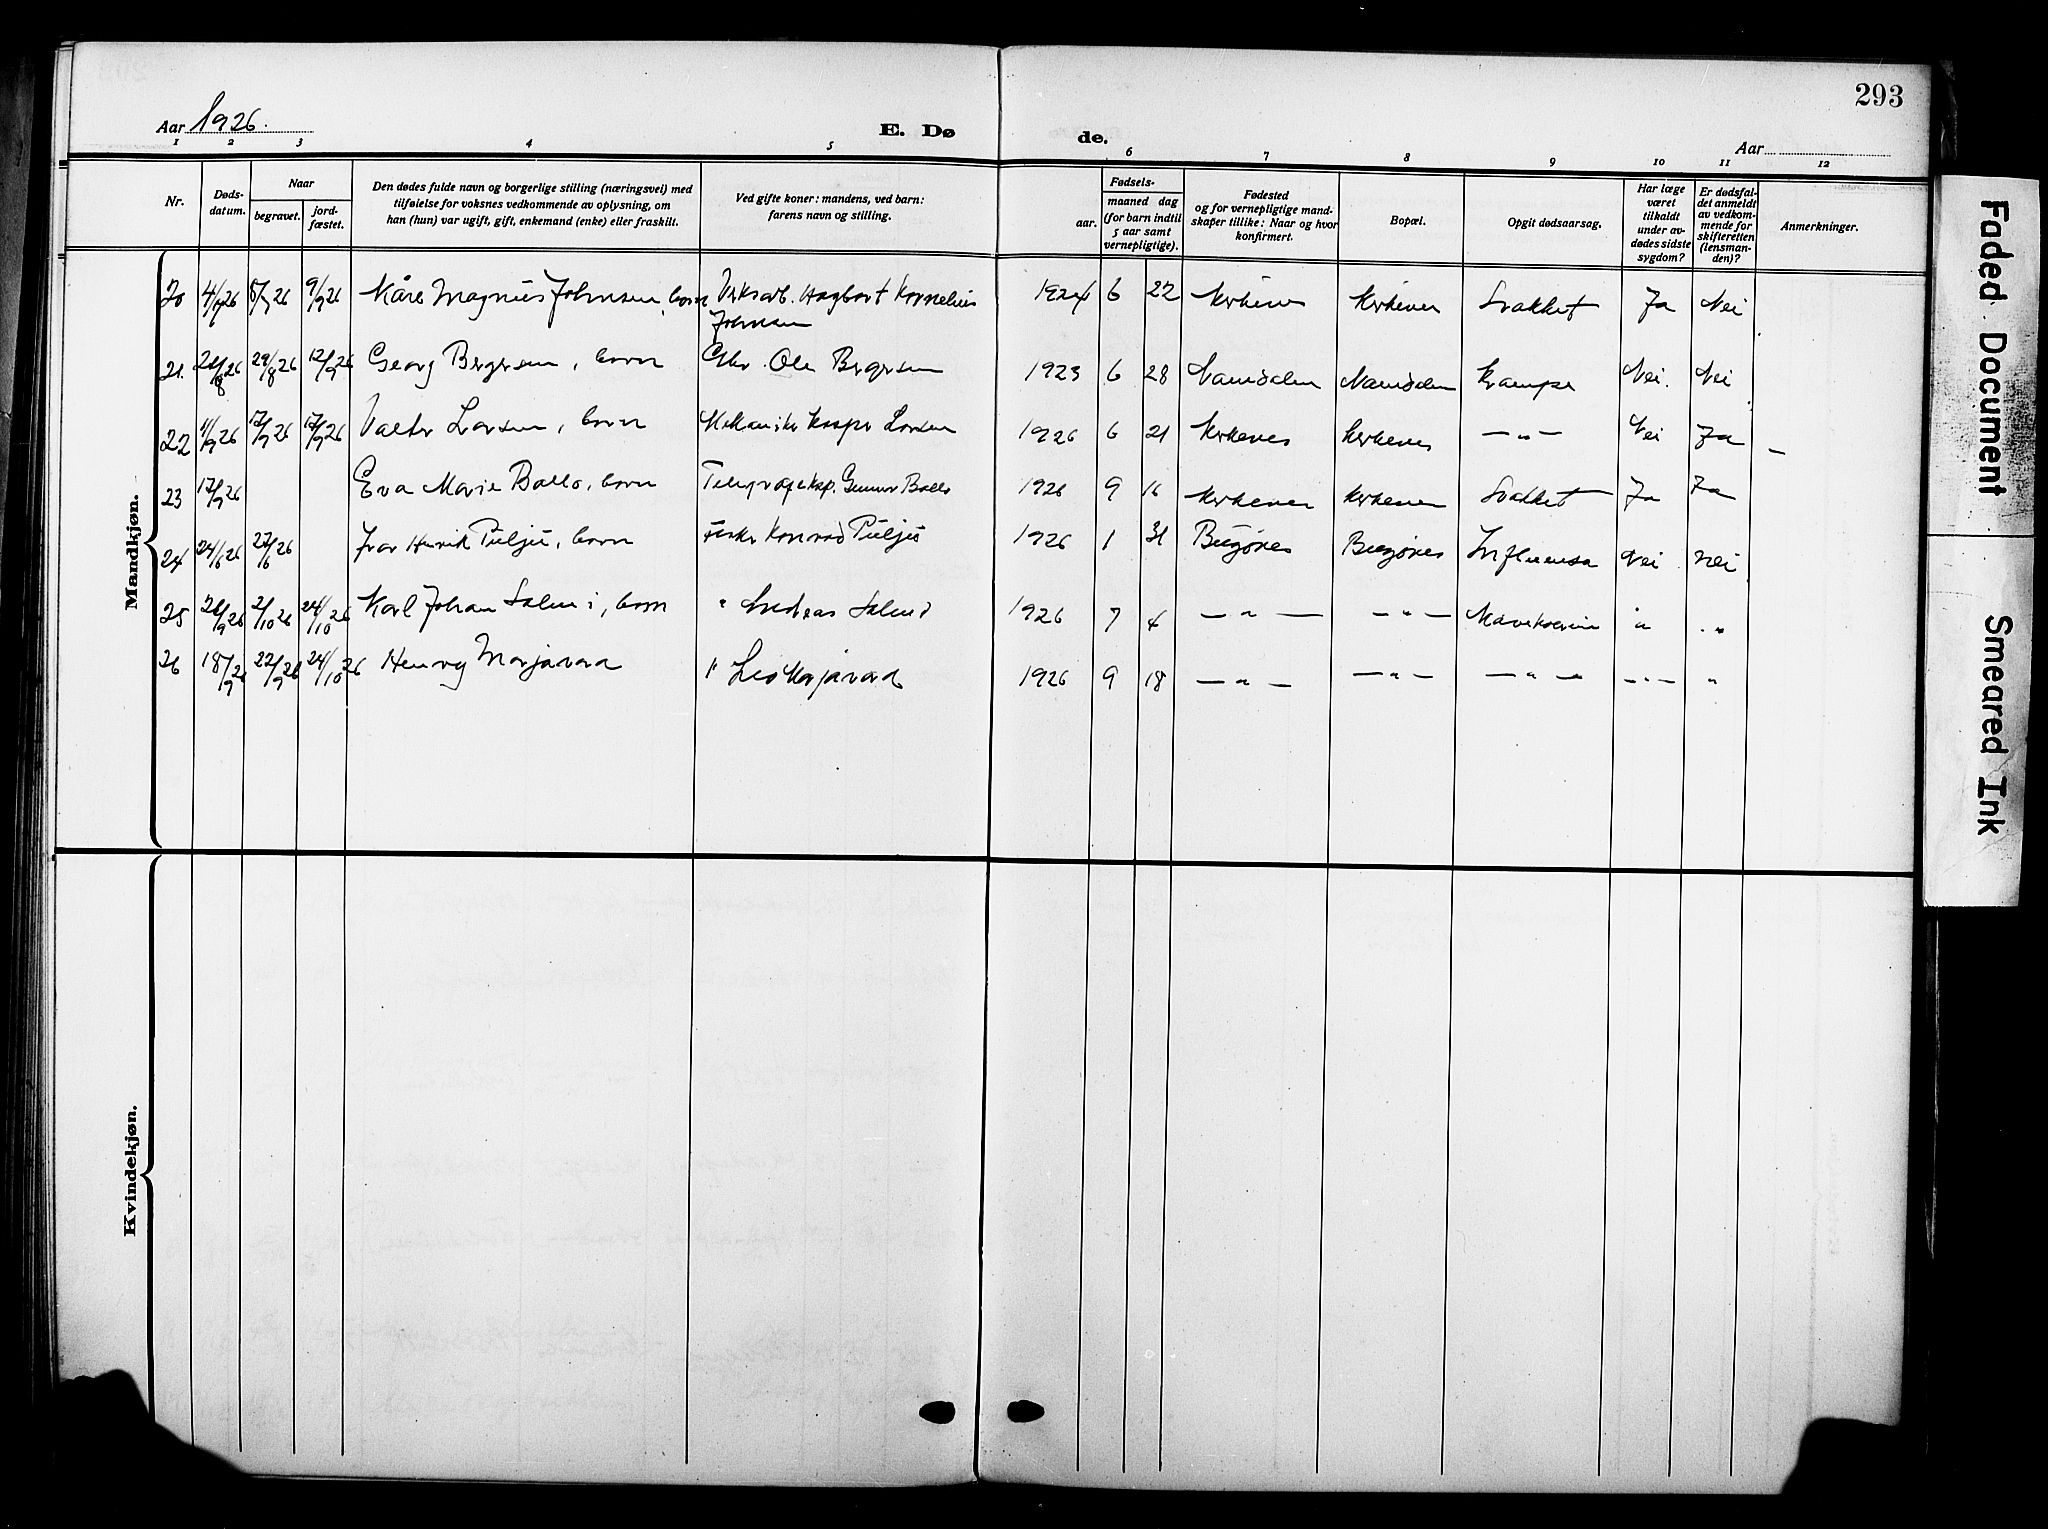 293
Aar 1926.
E. Dø
de.
Aar
1 2 3 4 5 6 7 8 9 10 11 12
Nr.
Døds-
datum.
Naar
begravet.
jord-
fæstet.
Den dødes fulde navn og borgerlige stilling (næringsvei) med
tilføielse for voksnes vedkommende av oplysning, om
han (hun) var ugift, gift, enkemand (enke) eller fraskilt.
Ved gifte koner: mandens, ved barn:
farens navn og stilling.
Fødsels-
aar.
maaned dag
(for barn indtil
5 aar samt
vernepligtige).
Fødested
og for vernepligtige mand-
skaper tillike: Naar og hvor
konfirmert.
Bopæl.
Opgit dødsaarsag.
Har læge
været
tilkaldt
under av-
dødes sidste
sygdom?
Er dødsfal-
det anmeldt
av vedkom-
mende for
skifteretten
(lensman-
den)?
Anmerkninger.
Mandkjøn.
20 Kåre Magnus Johnsen, barn Verksarb. Hagbart Kornelius 1924 6 22 Kirkenes Kirkenes Svakhet Ja Nei
Johnsen
21. 29/8 26 12/9 26 Georg Bergersen, barn Ole Bergersen 1923 6 28 Krampe Nei. Nei
22 11/9 26 17/9 26 17/9 26 Valter Larsen, barn Mekaniker Kaspar Larsen 1926 6 21 Kirkenes Kirkenes — „ — Nei Ja
23 17/9 26 Eva Marie Ballo, barn Telegrafeksp. Gunnar Ballo 1926 9 16 Kirkenes Kirkenes Svakhet Ja Ja
24 24/6 26 27/6 26 Ivar Henrik Puljū, barn Fisker Konrad Puljū 1926 1 31 Bugønes Bugønes Influensa Nei Nei
25 26/9 26 2/10 26 24/10 26 Karl Johan Salmi, barn " Andreas Salmi 1926 7 4 — „ — — „ — „ „
26 18/9 26 22/9 26 24/10 26 Henry Marjavara " Leo Marjavara 1926 9 18 — „ — — „ — — „ — — „ — „
Kvindekjøn.
Faded Document
Smeared Ink